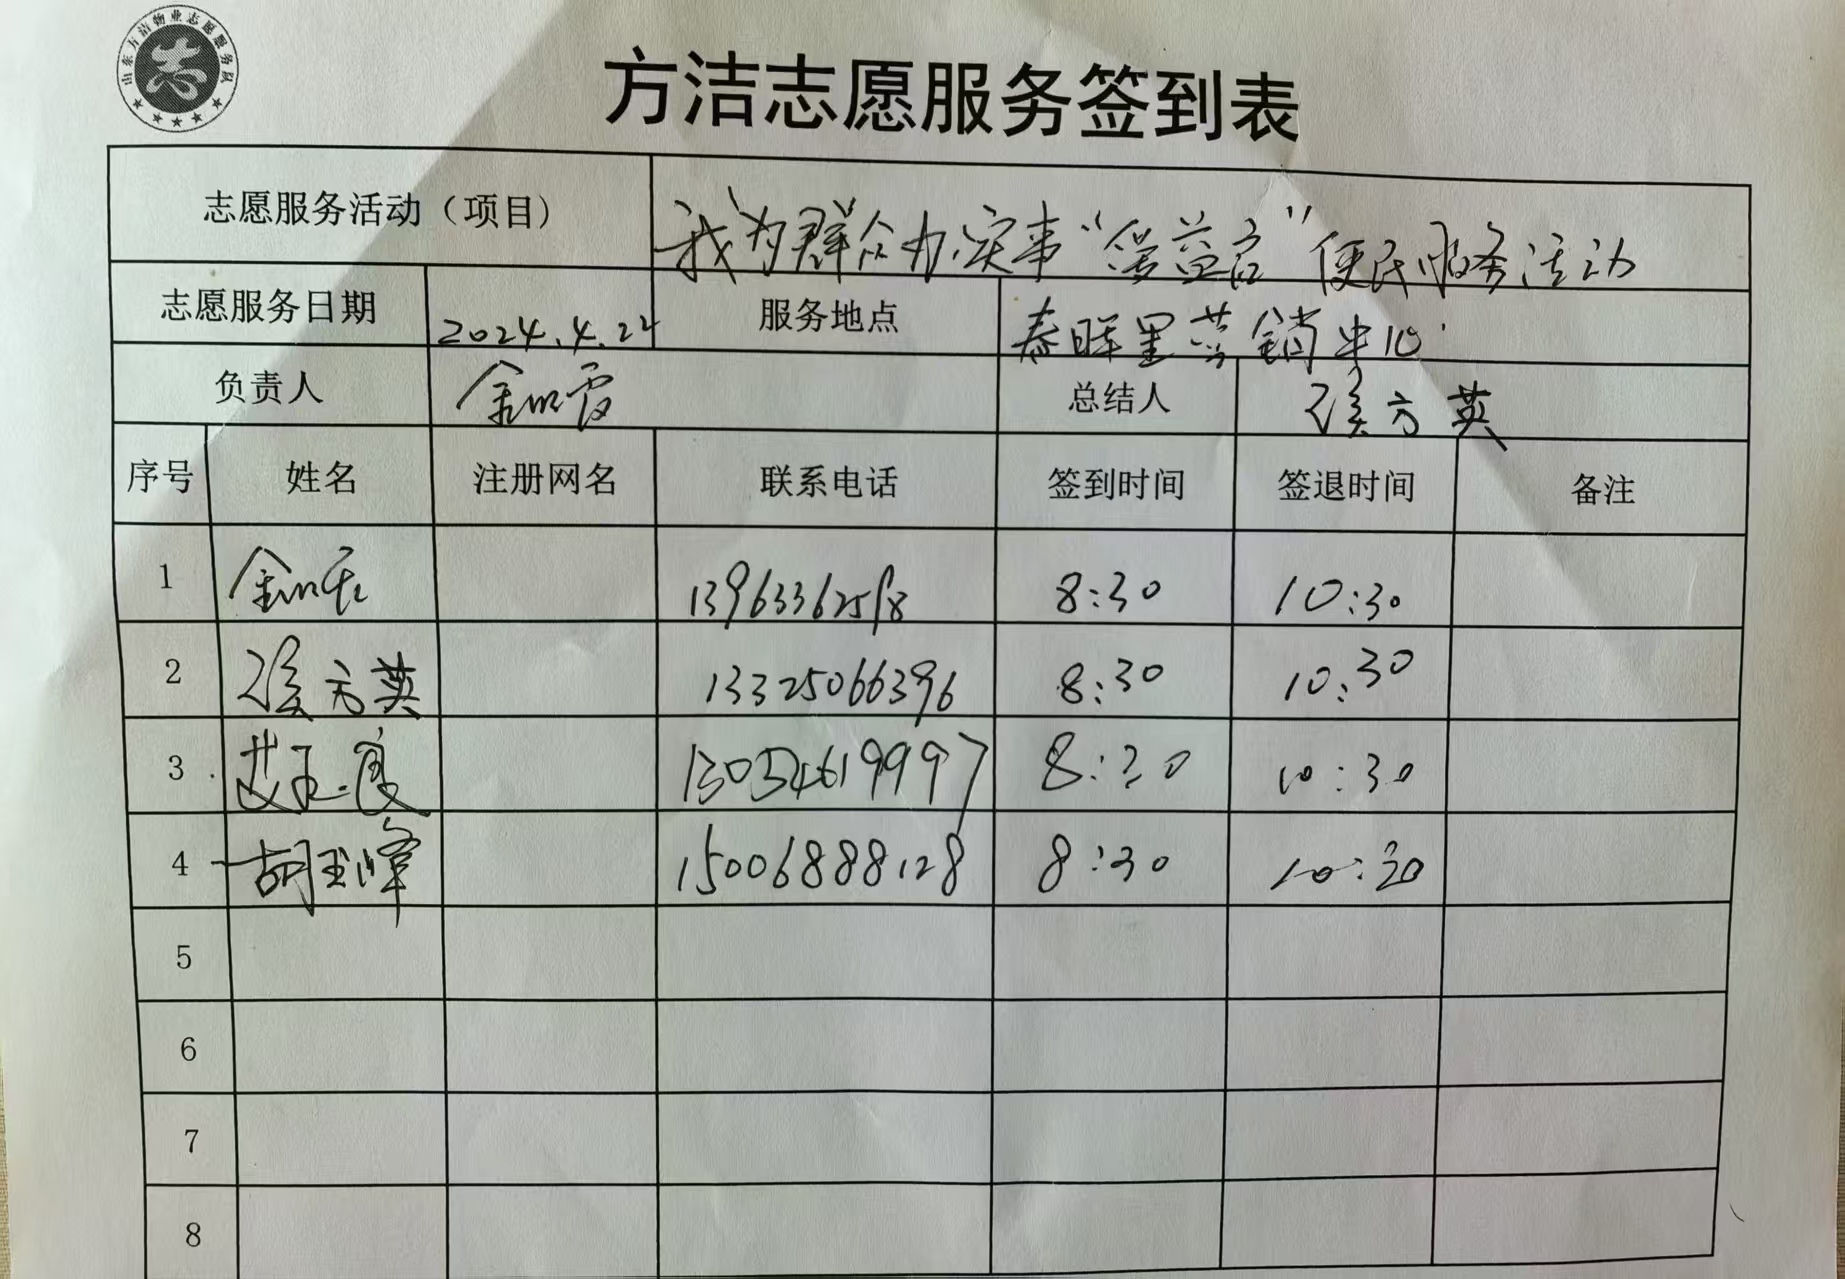 山东方洁物业志愿服务队
志
方洁志愿服务签到表
志愿服务活动（项目） 我为群众办实事“ ”便民服务活动
志愿服务日期 2024.4.22 服务地点 春晖里营销中心
负责人 总结人 侯方英
序号 姓名 注册网名 联系电话 签到时间 签退时间 备注
1 8:30 10:30
2 侯方英 13325066396 8:30 10:30
3 13054619997 8:30 10:30
4 胡玉峰 15006888128 8:30 10:30
5
6
7
8